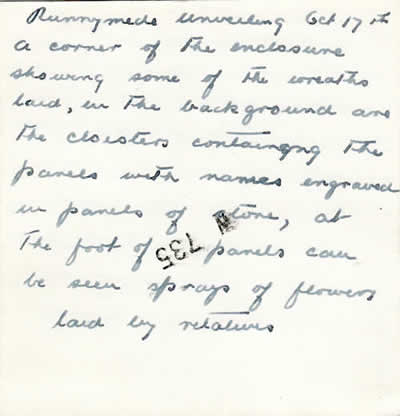 Runnymede unveiling Oct 17th
A corner of the enclosure
showing some of the wreaths
laid, in the background are
the cloisters containgng the
panels with names engraved
in panels of stone, at
the foot of panels can
be seen sprays of flowers
laid by relatives
735